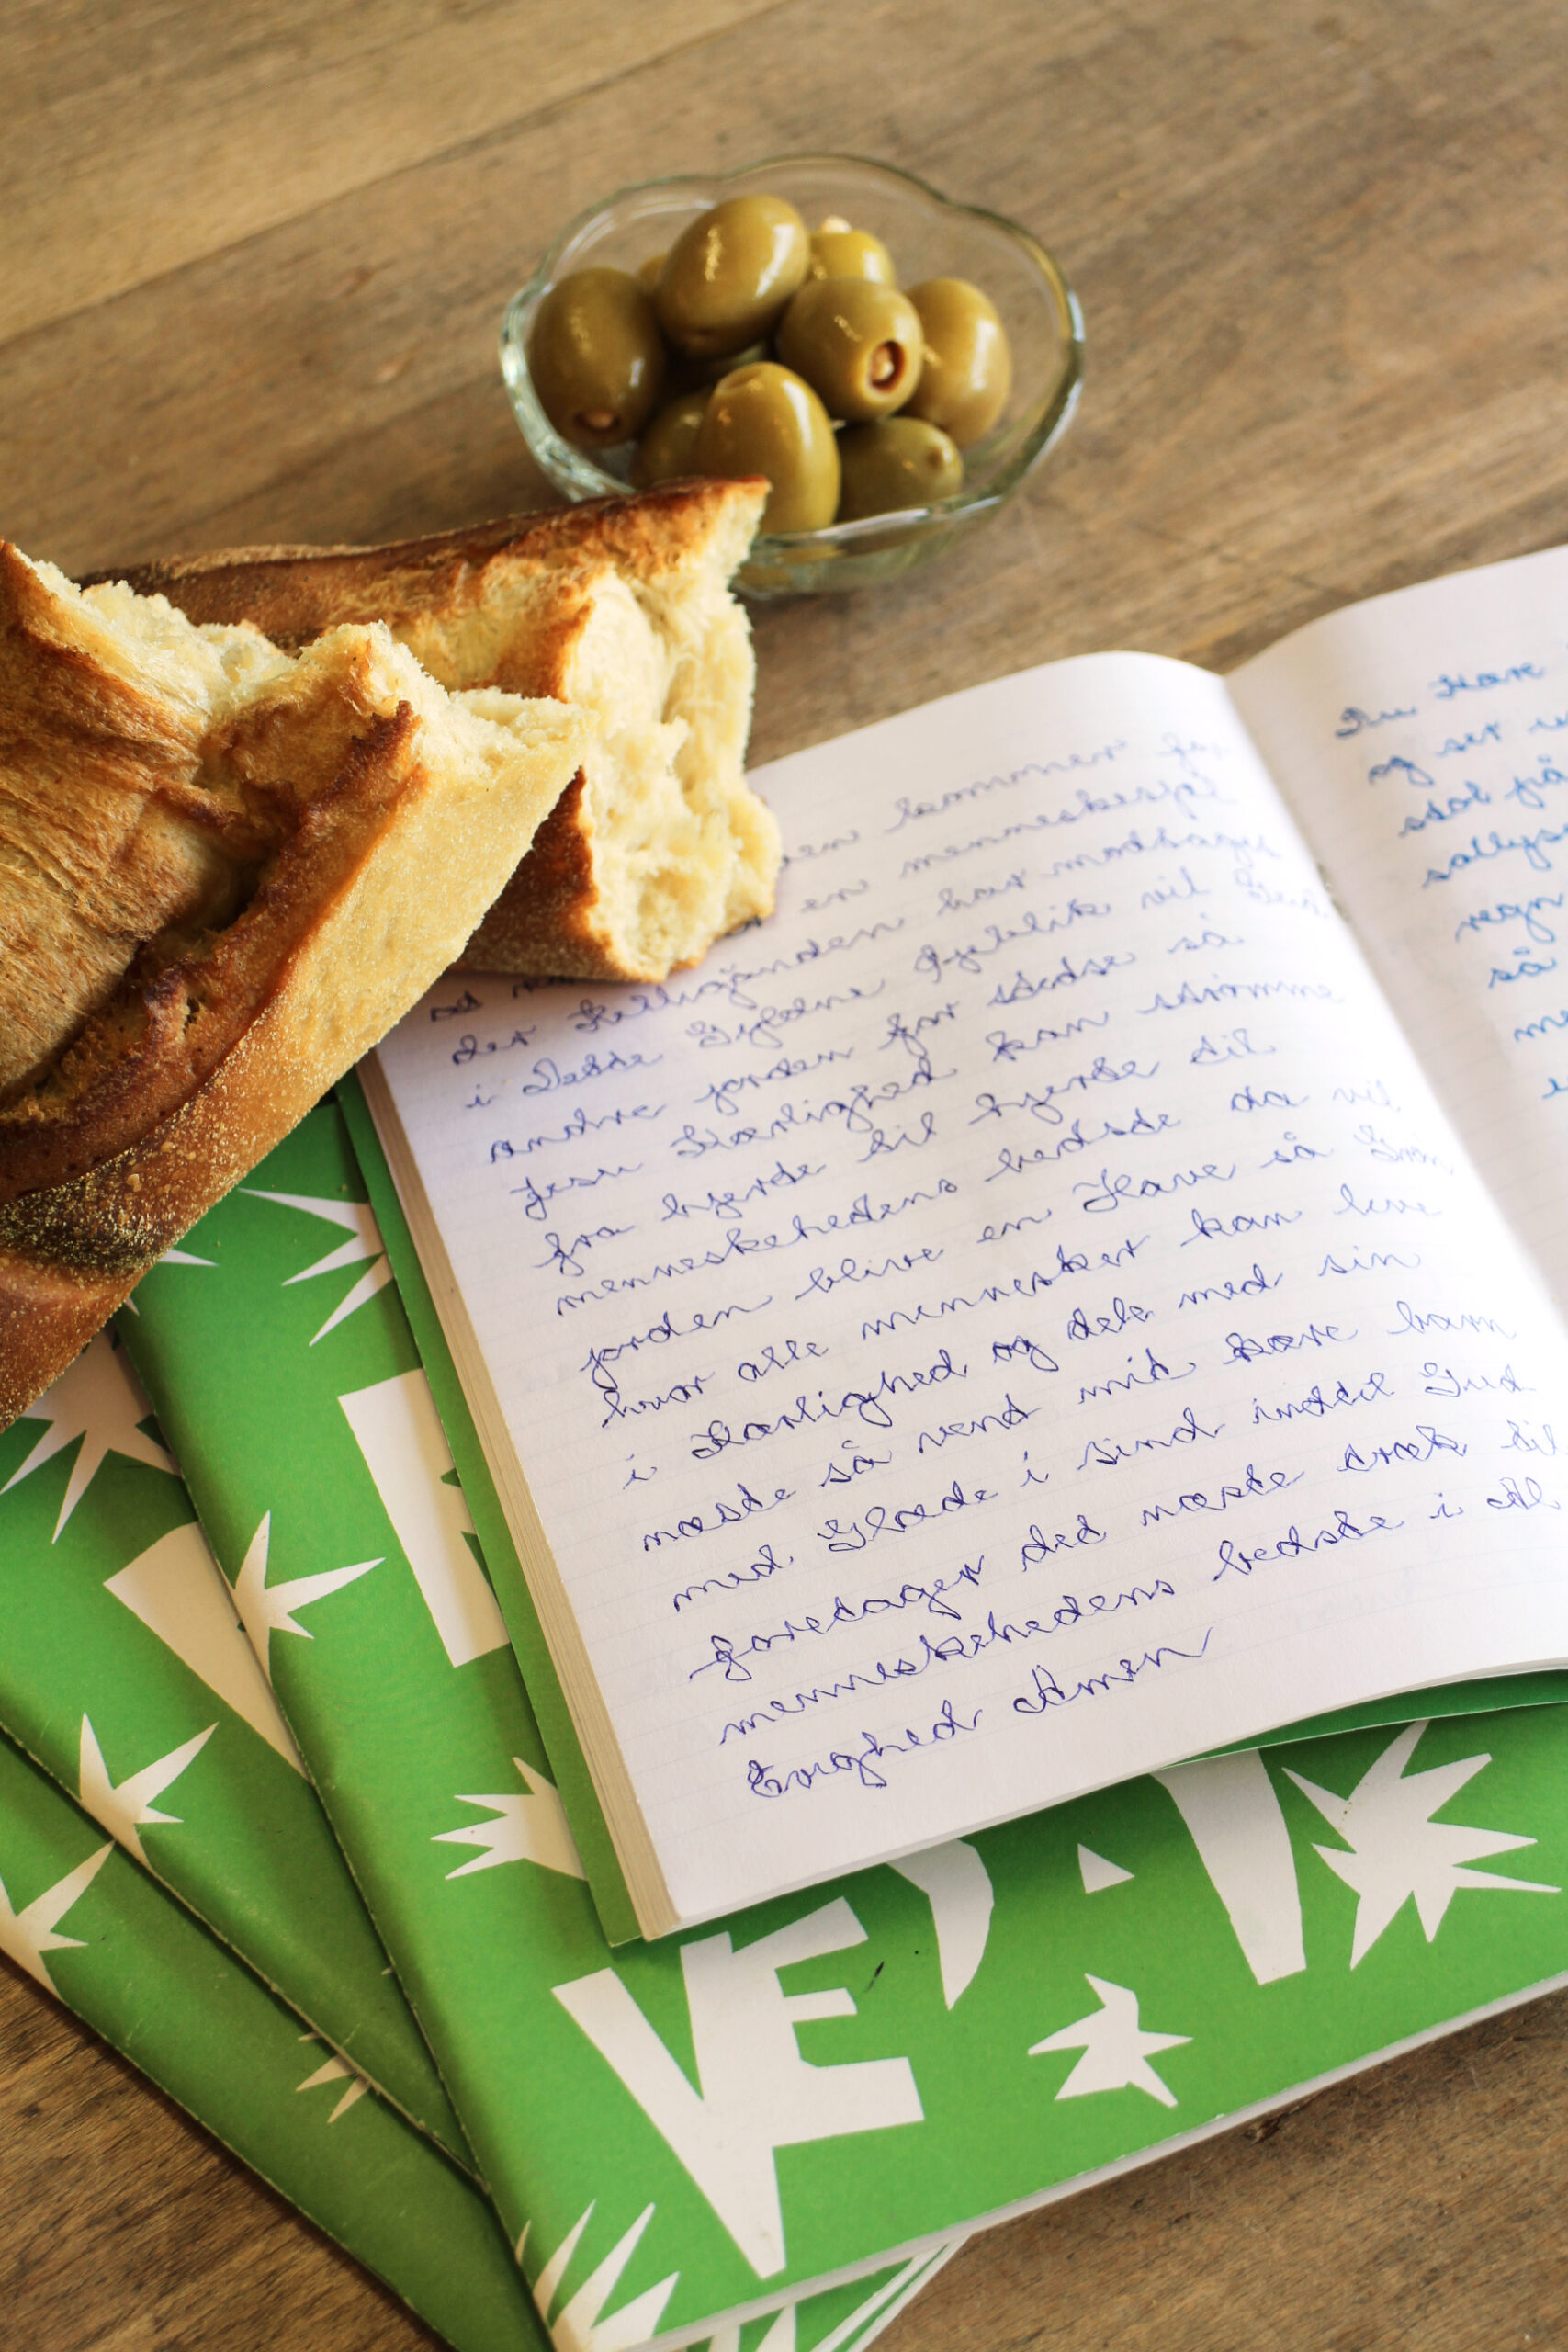 kommer
en menneskesjæl
der Helligånden har modtaget
i Dette Gyldne Øjeblik vil Gud
andre jorden for stedse så
Jesu Kærlighed kan strømme
fra hjerte til hjerte til
menneskehedens bedste da vil
jorden blive en Have så Grøn
hvor alle mennesker kan leve
i Kærlighed og dele med sin
næste så vend mit kære barn
med Glæde i sind indtil Gud
foretager det næste træk til
menneskehedens bedste i Al
Evighed Amen
Din Have
og ser
stol på
sollys
regn
så
VE